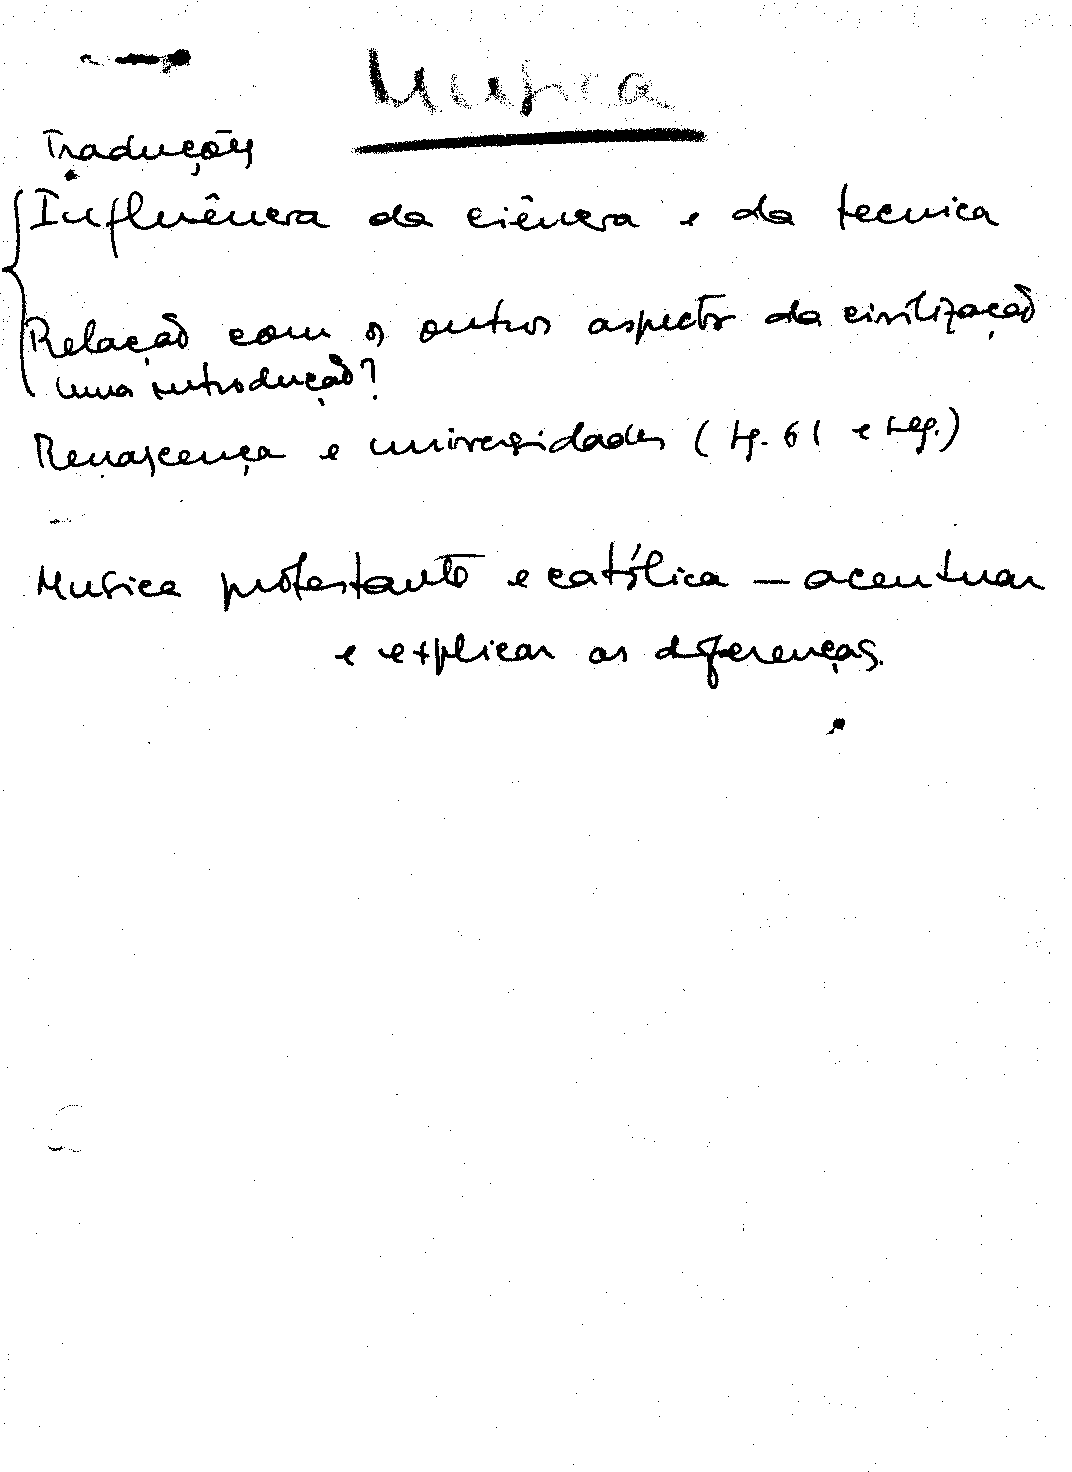 Musica
Traduções
Influência da ciência e da tecnica
Relação com os outros aspectos da civilização
uma introdução?
Renascença e universidades (pg. 61 e seg.)
Musica protestante e católica — acentuar
e explicar as diferenças.